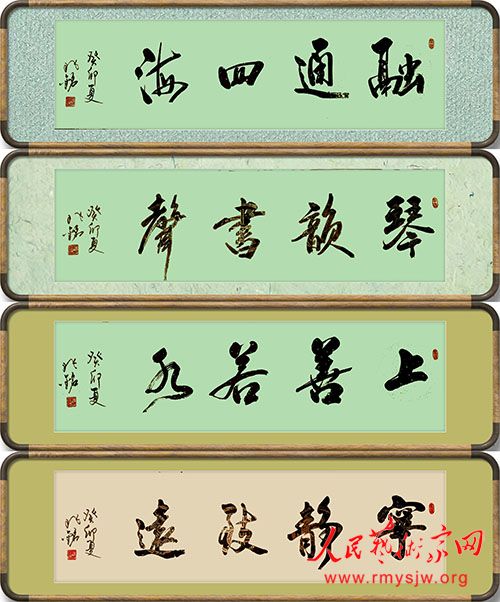 融通四海
癸卯夏
琴韻書聲
癸卯夏
上善若水
癸卯夏
寧靜致遠
癸卯夏
人民艺术家网
www.rmysjw.org